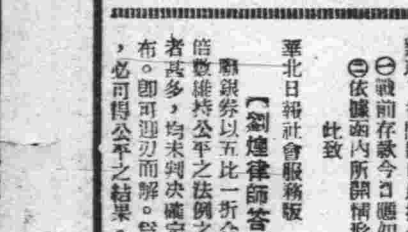 ㊀戰前存款今日應如
㊁依據函內所開情形
此致
華北日報社會服務版
【劉煌律師答
聯銀券以五比一折合
倍數維持公平之法例之
者甚多，均未判决確定
布。卽可迎刃而解。
，必可得公平之結果。